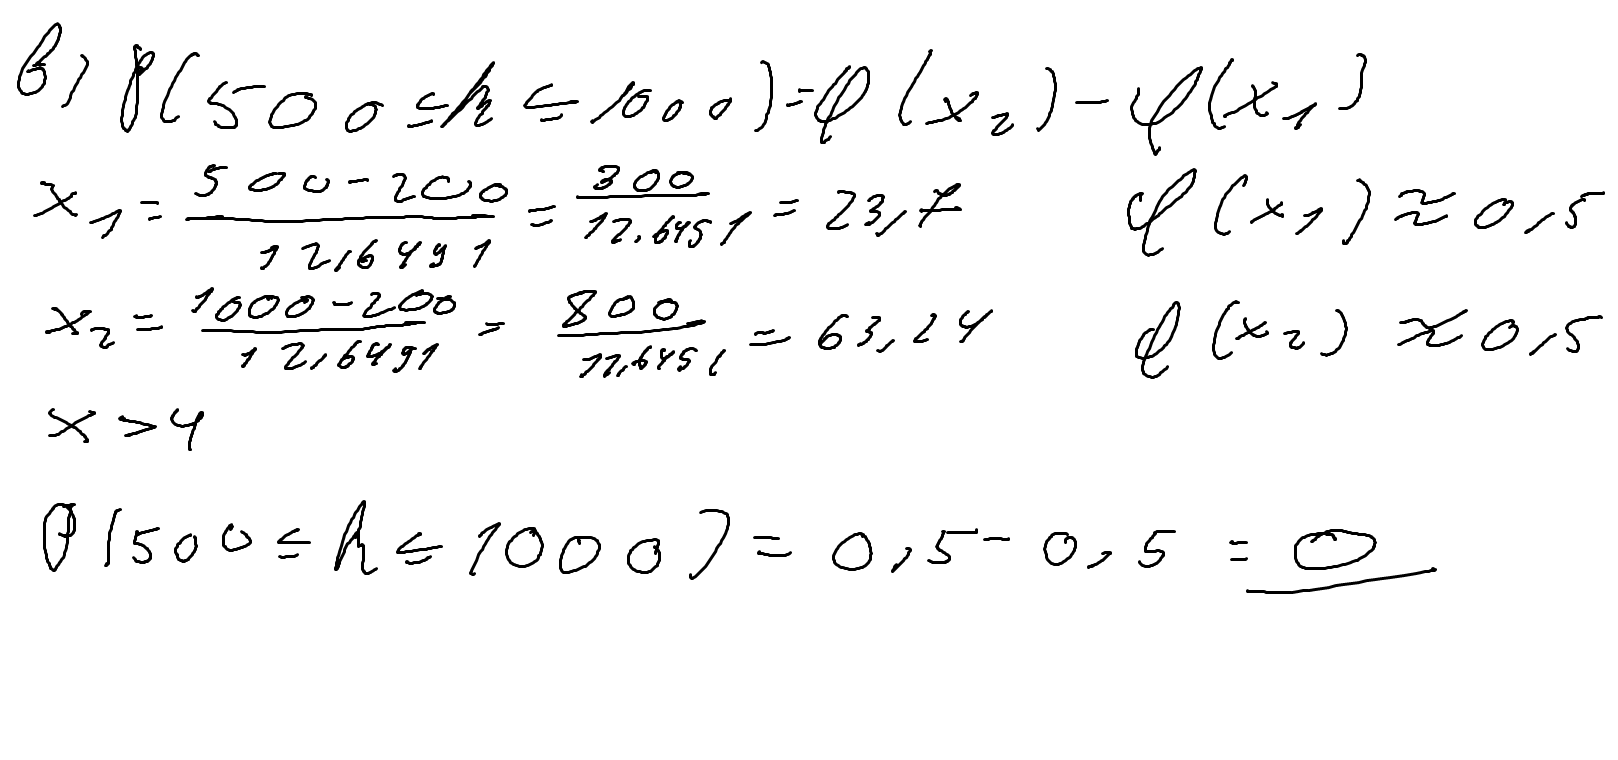 в) P(500≤k≤1000)=φ(x₂)-φ(x₁)
x₁ = (500-200)/(12,6491) = 300/(12,6451) = 23,7 φ(x₁) ≈ 0,5
x₂ = (1000-200)/(12,6491) = 800/(12,6451) = 63,24 φ(x₂) ≈ 0,5
x > 4
P(500≤k≤1000) = 0,5 - 0,5 = 0